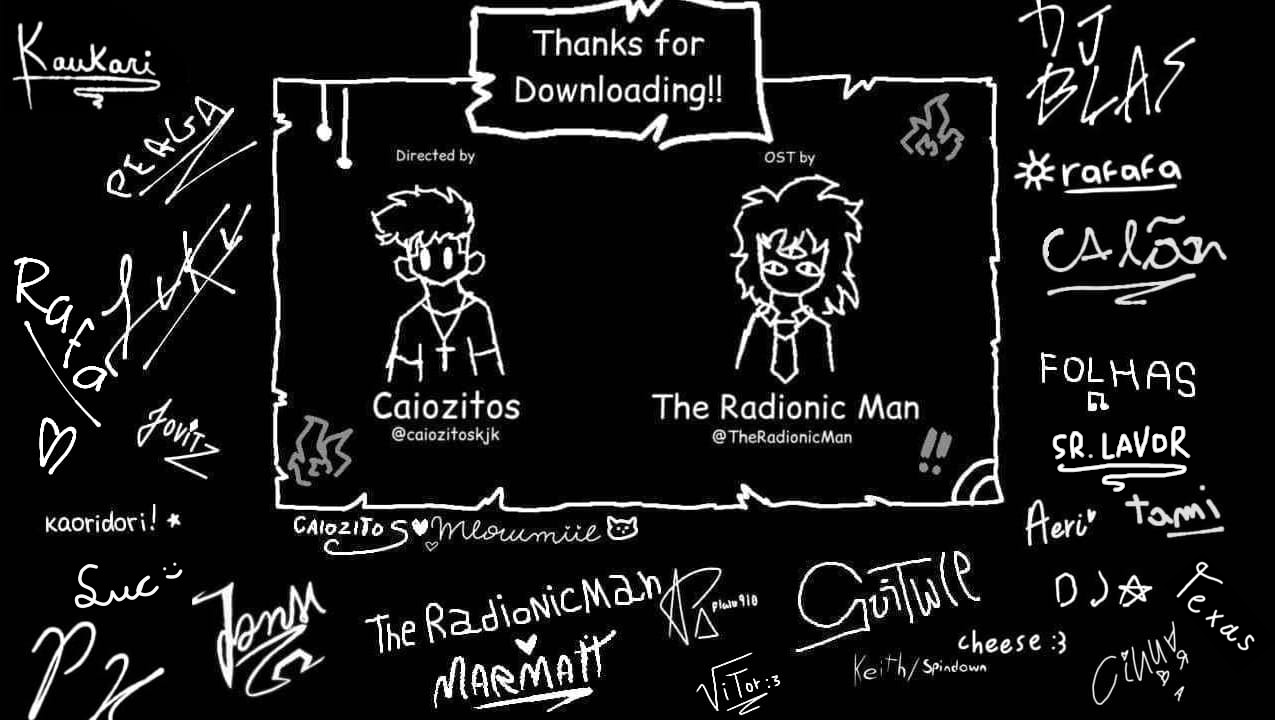 Thanks for
Downloading!!
Directed by
OST by
Caiozitos
@caiozitoskjk
The Radionic Man
@TheRadionicMan
Kaukari
PEAGA
Rafa
Luke
Jovit
kaoridori!
Luc :)
CAIOZITOS
meowmiie
The RadioNicMan
MARMATT
pluto910
ViTor :3
GuiTWLE
cheese :3
Keith/Spindown
DJ
BLAS
rafafa
CAlõon
FOLHAS
SR. LAVOR
Aeri
tami
DJ
Texas